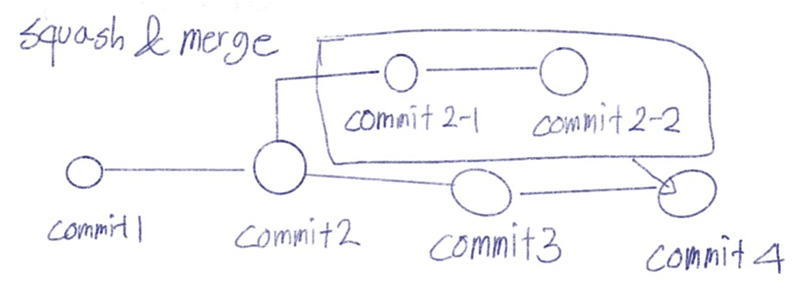 squash & merge
commit 2-1
commit 2-2
commit 1
commit 2
commit 3
commit 4